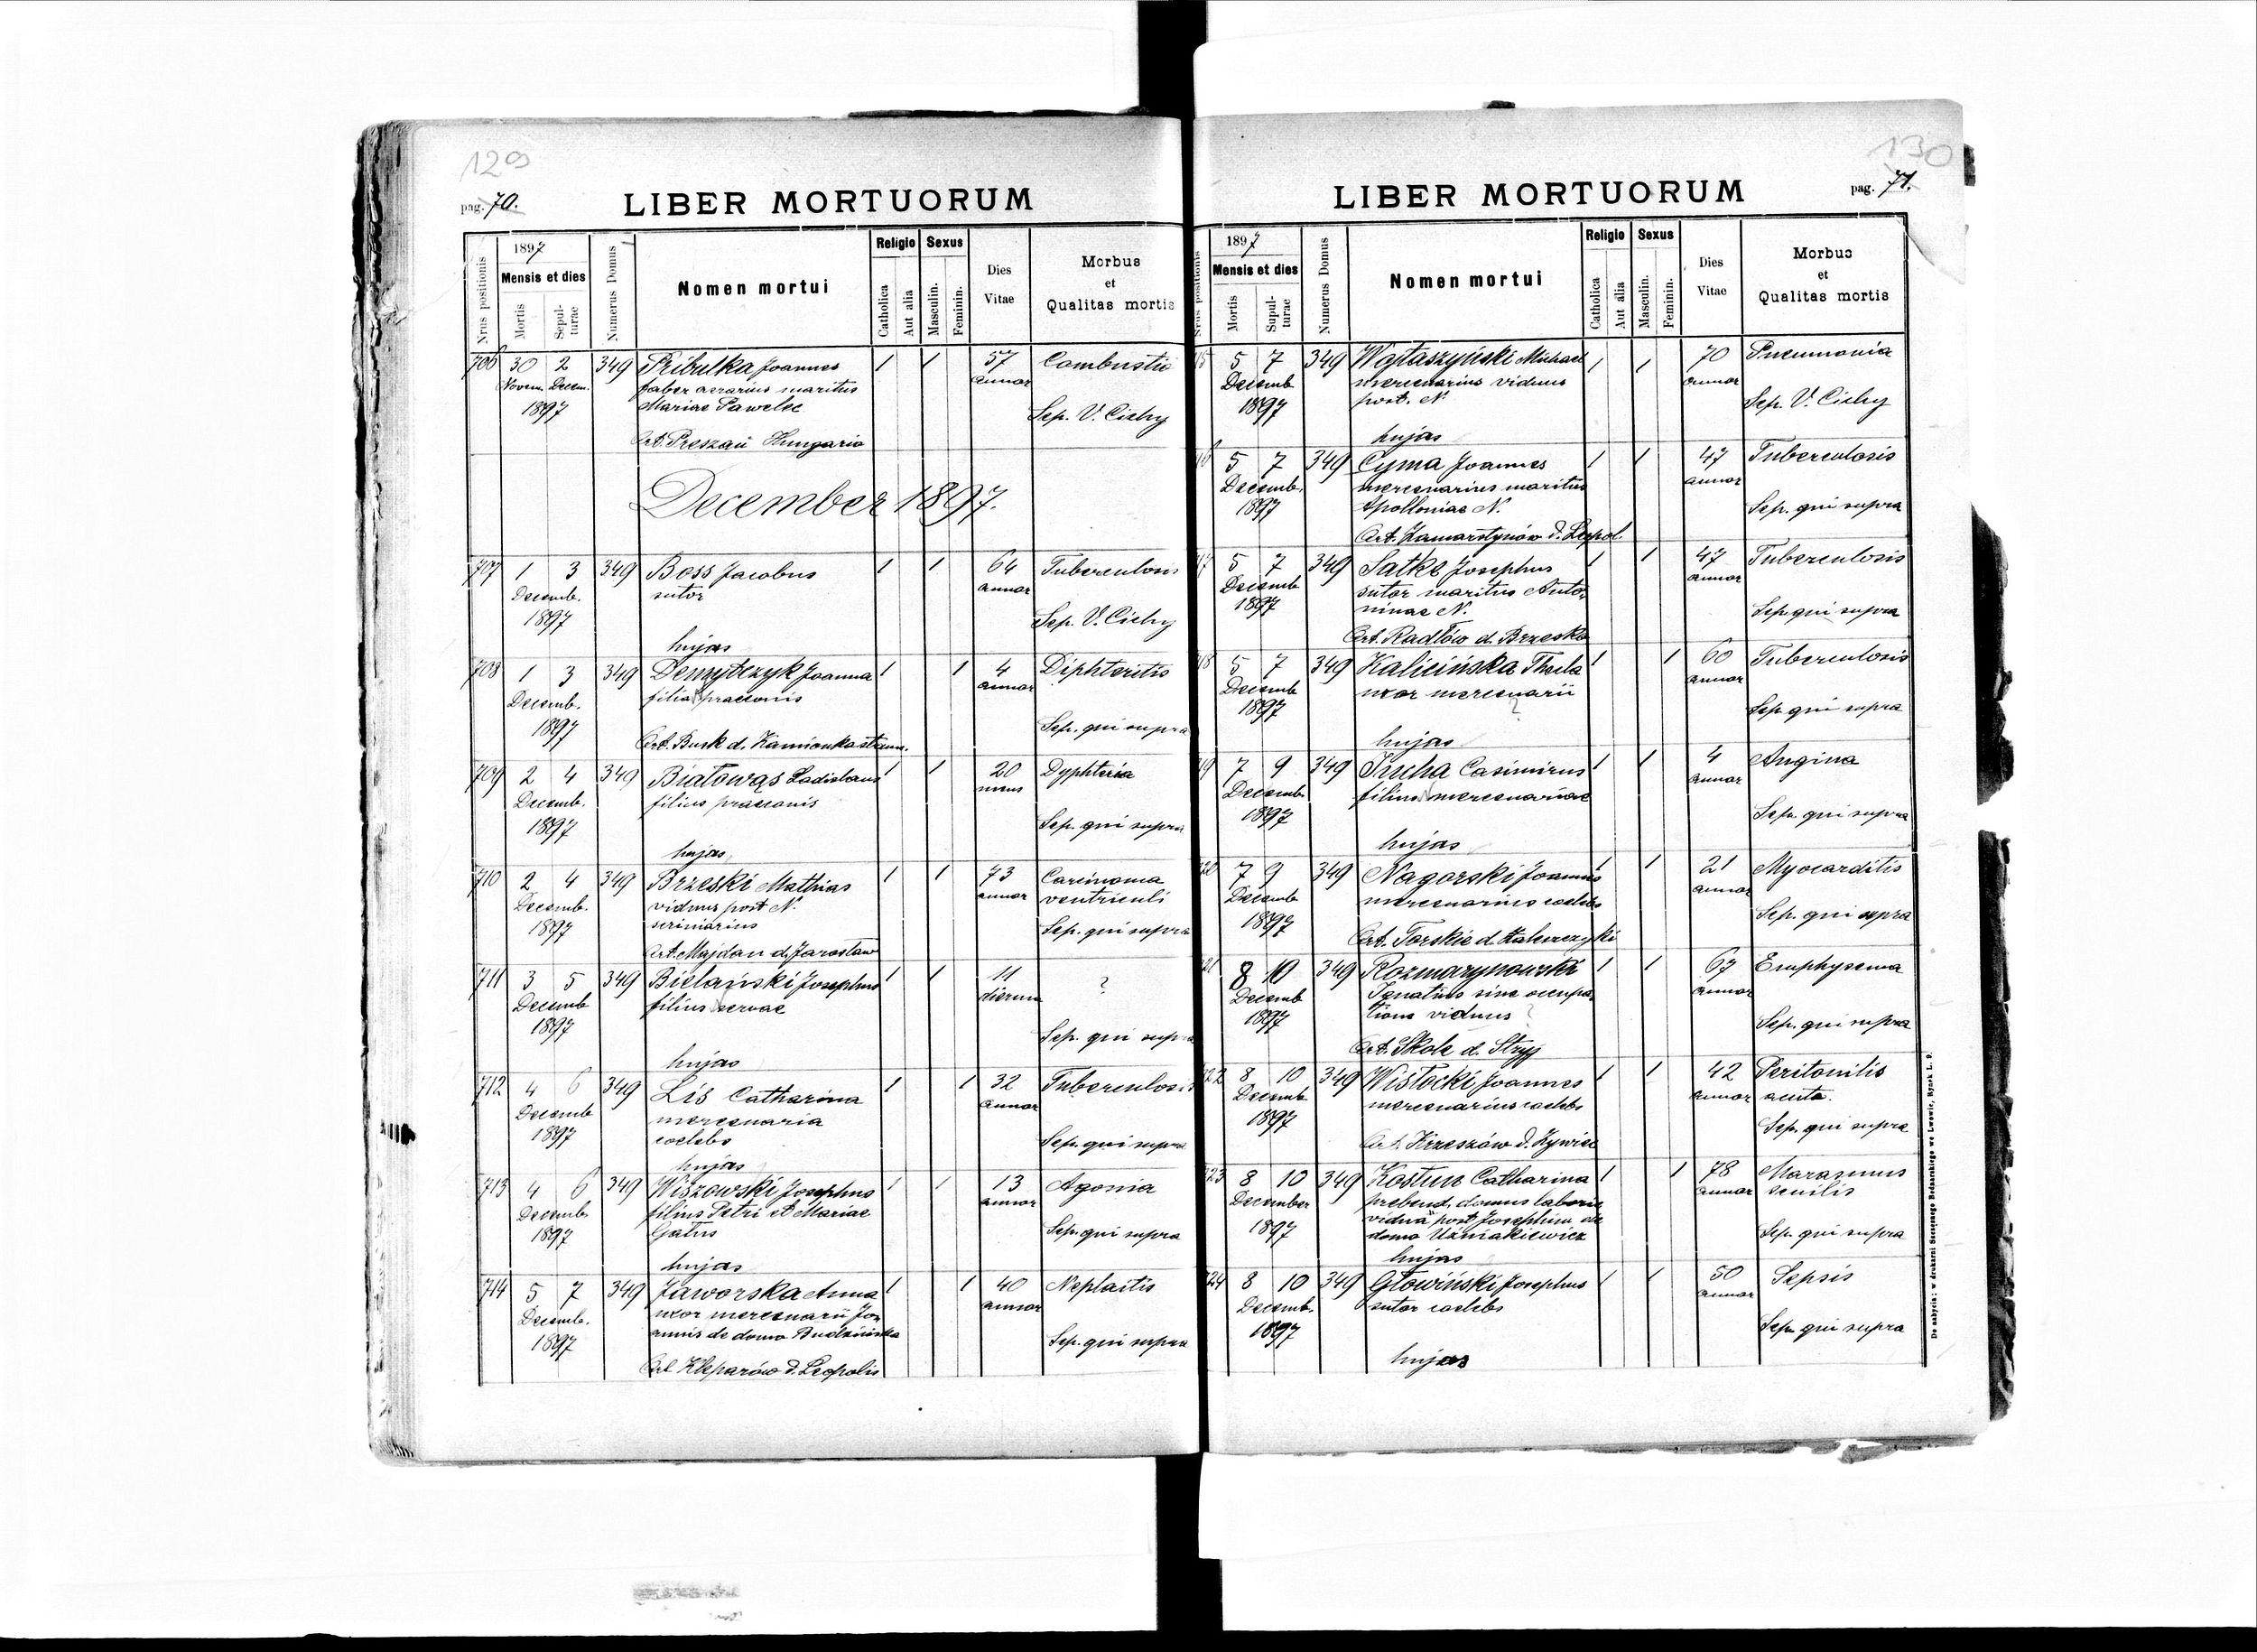 129
pag. 70.
LIBER MORTUORUM
Nrus positionis
1897
Mensis et dies
Mortis
Sepul-
turae
Numerus Domus
Nomen mortui
Religio
Catholica
Aut alia
Sexus
Masculin.
Feminin.
Dies
Vitae
Morbus
et
Qualitas mortis
706 30 2 349 Pribulka Joannes 1 1 57 Combustio
Novem. Decem. faber aerarius maritus annor
1897 Mariae Pawelec Sep. V. Cichy
Art. Preszaú Hungaria
December 1897.
707 1 3 349 Boss Jacobus 1 1 64 Tuberculosis
Decemb. sutor annor
1897 Sep. V. Cichy
hujas
708 1 3 349 Demytczyk Joanna 1 1 4 Diphteritis
Decemb. filia praeconis annor
1897 Sep. qui supra
Art. Busk d. Kamionka strum.
709 2 4 349 Białowąs Ladislaus 1 1 20 Dyphteria
Decemb. filius praeconis mens
1897 Sep. qui supra
hujas
710 2 4 349 Brzeski Mathias 1 1 73 Carcinoma
Decemb. viduus post N. annor ventriculi
1897 scriniarius Sep. qui supra
Art. Majdan d. Jarosław
711 3 5 349 Bielański Josephus 1 1 11 ?
Decemb filius servae dierum
1897 Sep. qui supra
hujas
712 4 6 349 Lis Catharina 1 1 32 Tuberculosis
Decemb mercenaria annor
1897 coelebs Sep. qui supra
hujas
713 4 6 349 Wiszowski Josephus 1 1 13 Agonia
Decemb filius Petri et Mariae annor
1897 Gatus Sep. qui supra
hujas
714 5 7 349 Jaworska Anna 1 1 40 Neplaitis
Decemb. uxor mercenarii Jo= annor
1897 annis de domo Budzińska Sep. qui supra
Art Kleparów d. Leopolis
130
LIBER MORTUORUM
pag. 71.
Nrus positionis
1897
Mensis et dies
Mortis
Supul-
turae
Numerus Domus
Nomen mortui
Religio
Catholica
Aut alia
Sexus
Masculin.
Feminin.
Dies
Vitae
Morbus
et
Qualitas mortis
15 5 7 349 Wojtaszyński Michael 1 1 70 Pneumonia
Decemb mercenarius viduus annor
1897 post. N. Sep. V. Cichy
hujas
16 5 7 349 Cyma Joannes 1 1 47 Tuberculosis
Decemb. mercenarius maritus annor
1897 Apolloniae N. Sep. qui supra
Art. Zamarstynów d. Leopol.
17 5 7 349 Satke Josephus 1 1 47 Tuberculosis
Decemb sutor maritus Anto= annor
1897 ninae N. Sep. qui supra
Art. Radłów d. Brzesko
18 5 7 349 Kalicińska Thecla 1 1 60 Tuberculosis
Decemb uxor mercenarii annor
1897 ? Sep. qui supra
hujas
19 7 9 349 Casimirus 1 1 4 Angina
Decemb. filius mercenariae annor
1897 Sep. qui supra
hujas
20 7 9 349 Nagorski Joannes 1 1 21 Myocarditis
Decemb mercenarius coelebs annor
1897 Sep. qui supra
Art. Torskie d. Zaleszczyki
21 8 10 349 Rozmarynowski 1 1 67 Emphysema
Decemb Ignatius sine occupa= annor
1897 tione viduus ? Sep. qui supra
Art. Skole d. Stryj
722 8 10 349 Wisłocki Joannes 1 1 42 Peritonitis
Decemb mercenarius coelebs annor acuta.
1897 Sep. qui supra
Art. Krzeszów d. Żywiec
723 8 10 349 Kostun Catharina 1 1 78 Marasmus
December prebend. domus laboris annor senilis
1897 vidua post Josephum de
domo Uzniakiewicz Sep. qui supra
hujas
724 8 10 349 Głowiński Josephus 1 1 50 Sepsis
Decemb. sutor coelebs annor
1897 Sep. qui supra
hujas
De nabycia: w drukarni Szczęsnego Bednarskiego we Lwowie, Rynek L. 9.